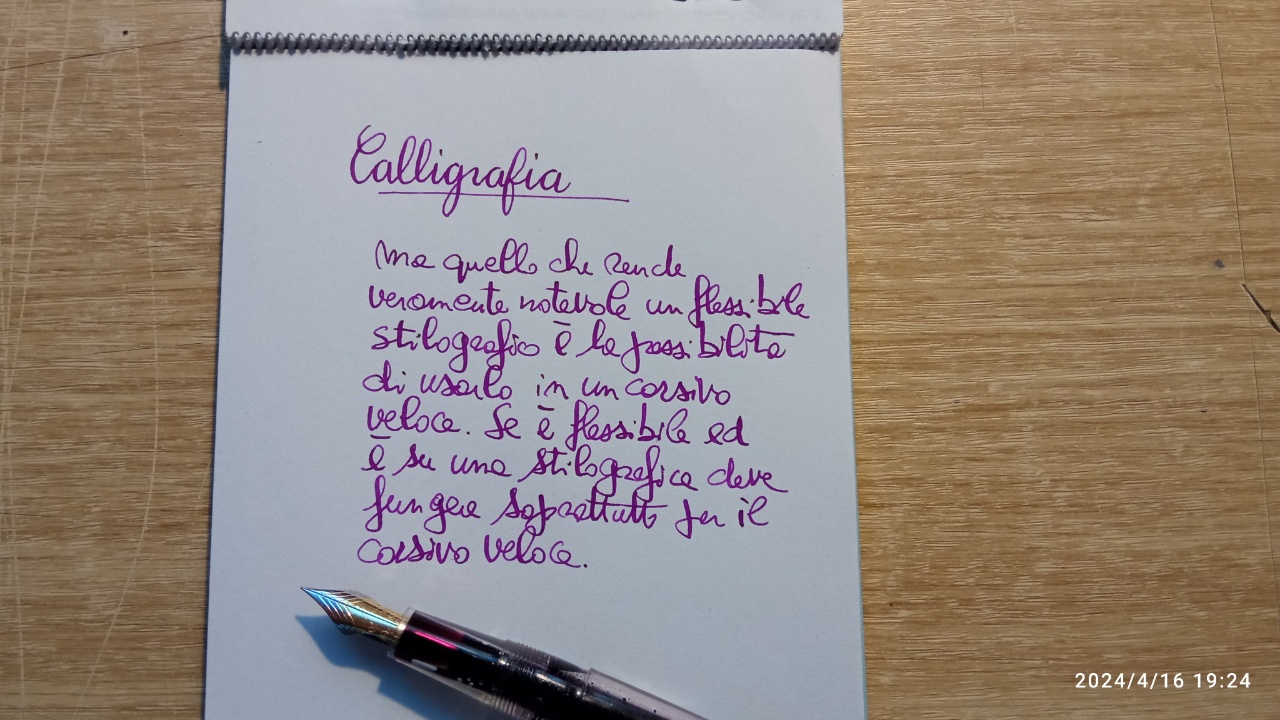 Calligrafia
Ma quello che rende
veramente notevole un flessibile
stilografico è la possibilità
di usarlo in un corsivo
veloce. Se è flessibile ed
è su una stilografica deve
fungere soprattutto per il
corsivo veloce.
2024/4/16 19:24